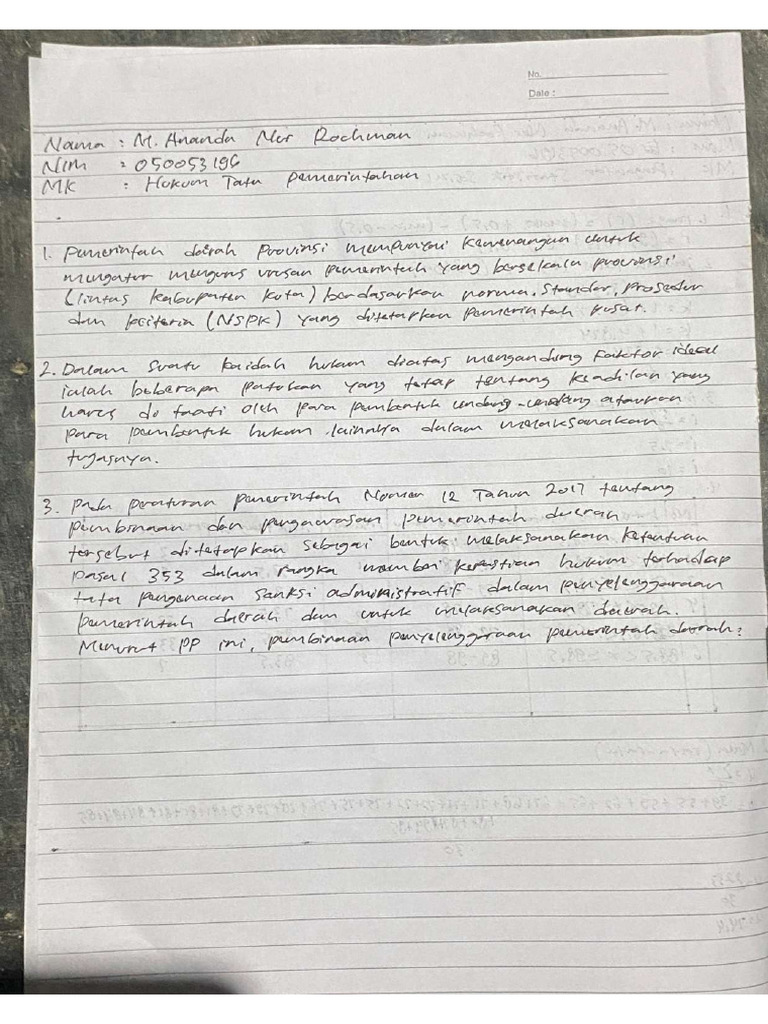 No.
Date :
Nama : M. Ananda Nur Rochman
NIM : 050053196
MK : Hukum Tata Pemerintahan
1. Pemerintah daerah Provinsi mempunyai kewenangan untuk
mengatur mengurus urusan pemerintah yang berskala provinsi
(lintas kabupaten kota) berdasarkan norma, Standar, Prosedur
dan kriteria (NSPK) yang ditetapkan pemerintah pusat.
2. Dalam suatu kaidah hukum diatas mengandung faktor ideal
ialah beberapa patokan yang tetap tentang keadilan yang
harus di taati oleh para pembentuk undang-undang ataupun
para pembentuk hukum lainnya dalam melaksanakan
tugasnya.
3. Pada peraturan pemerintah Nomor 12 Tahun 2017 tentang
pembinaan dan pengawasan pemerintah daerah
tersebut ditetapkan sebagai bentuk melaksanakan ketentuan
pasal 353 dalam rangka memberi kepastian hukum terhadap
tata pengenaan sanksi administratif dalam penyelenggaraan
pemerintah daerah dan untuk melaksanakan daerah.
Menurut PP ini, pembinaan penyelenggaraan pemerintah daerah: